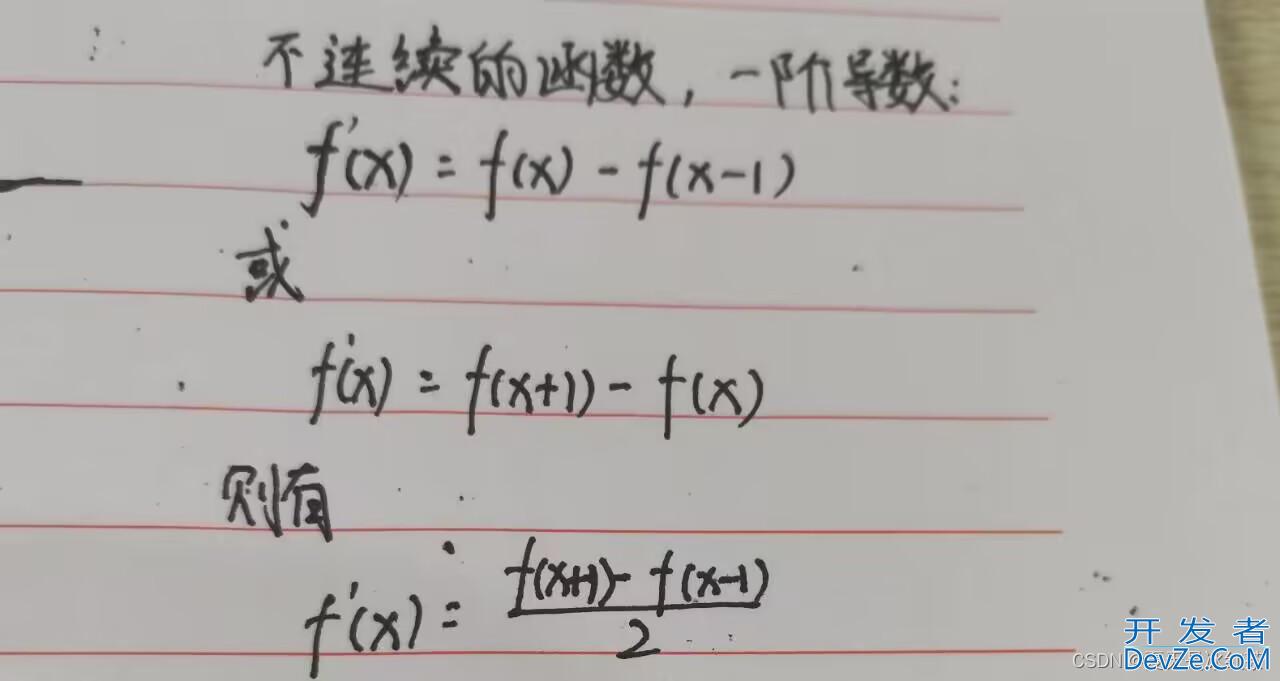 不连续的函数，一阶导数：
f'(x) = f(x) - f(x-1)
或
f'(x) = f(x+1) - f(x)
则有
f'(x) = \frac{f(x+1) - f(x-1)}{2}
开发者
CSDN
DevZe.CoM